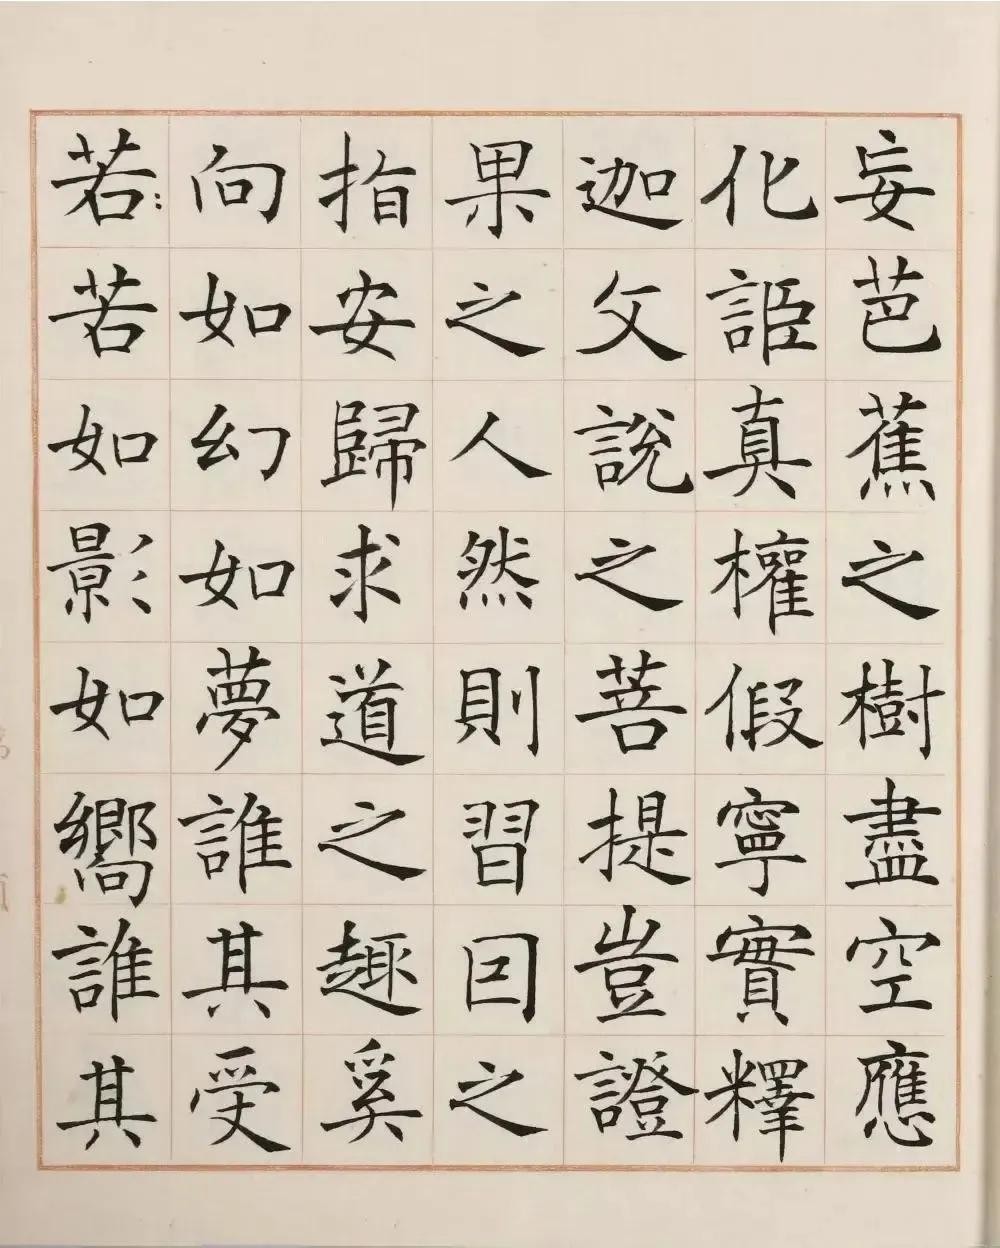 妄芭蕉之樹盡空應
化詎真權假寧實釋
迦文說之菩提豈證
果之人然則習囙之
指安歸求道之趣奚
向如幻如夢誰其受
若若如影如嚮誰其